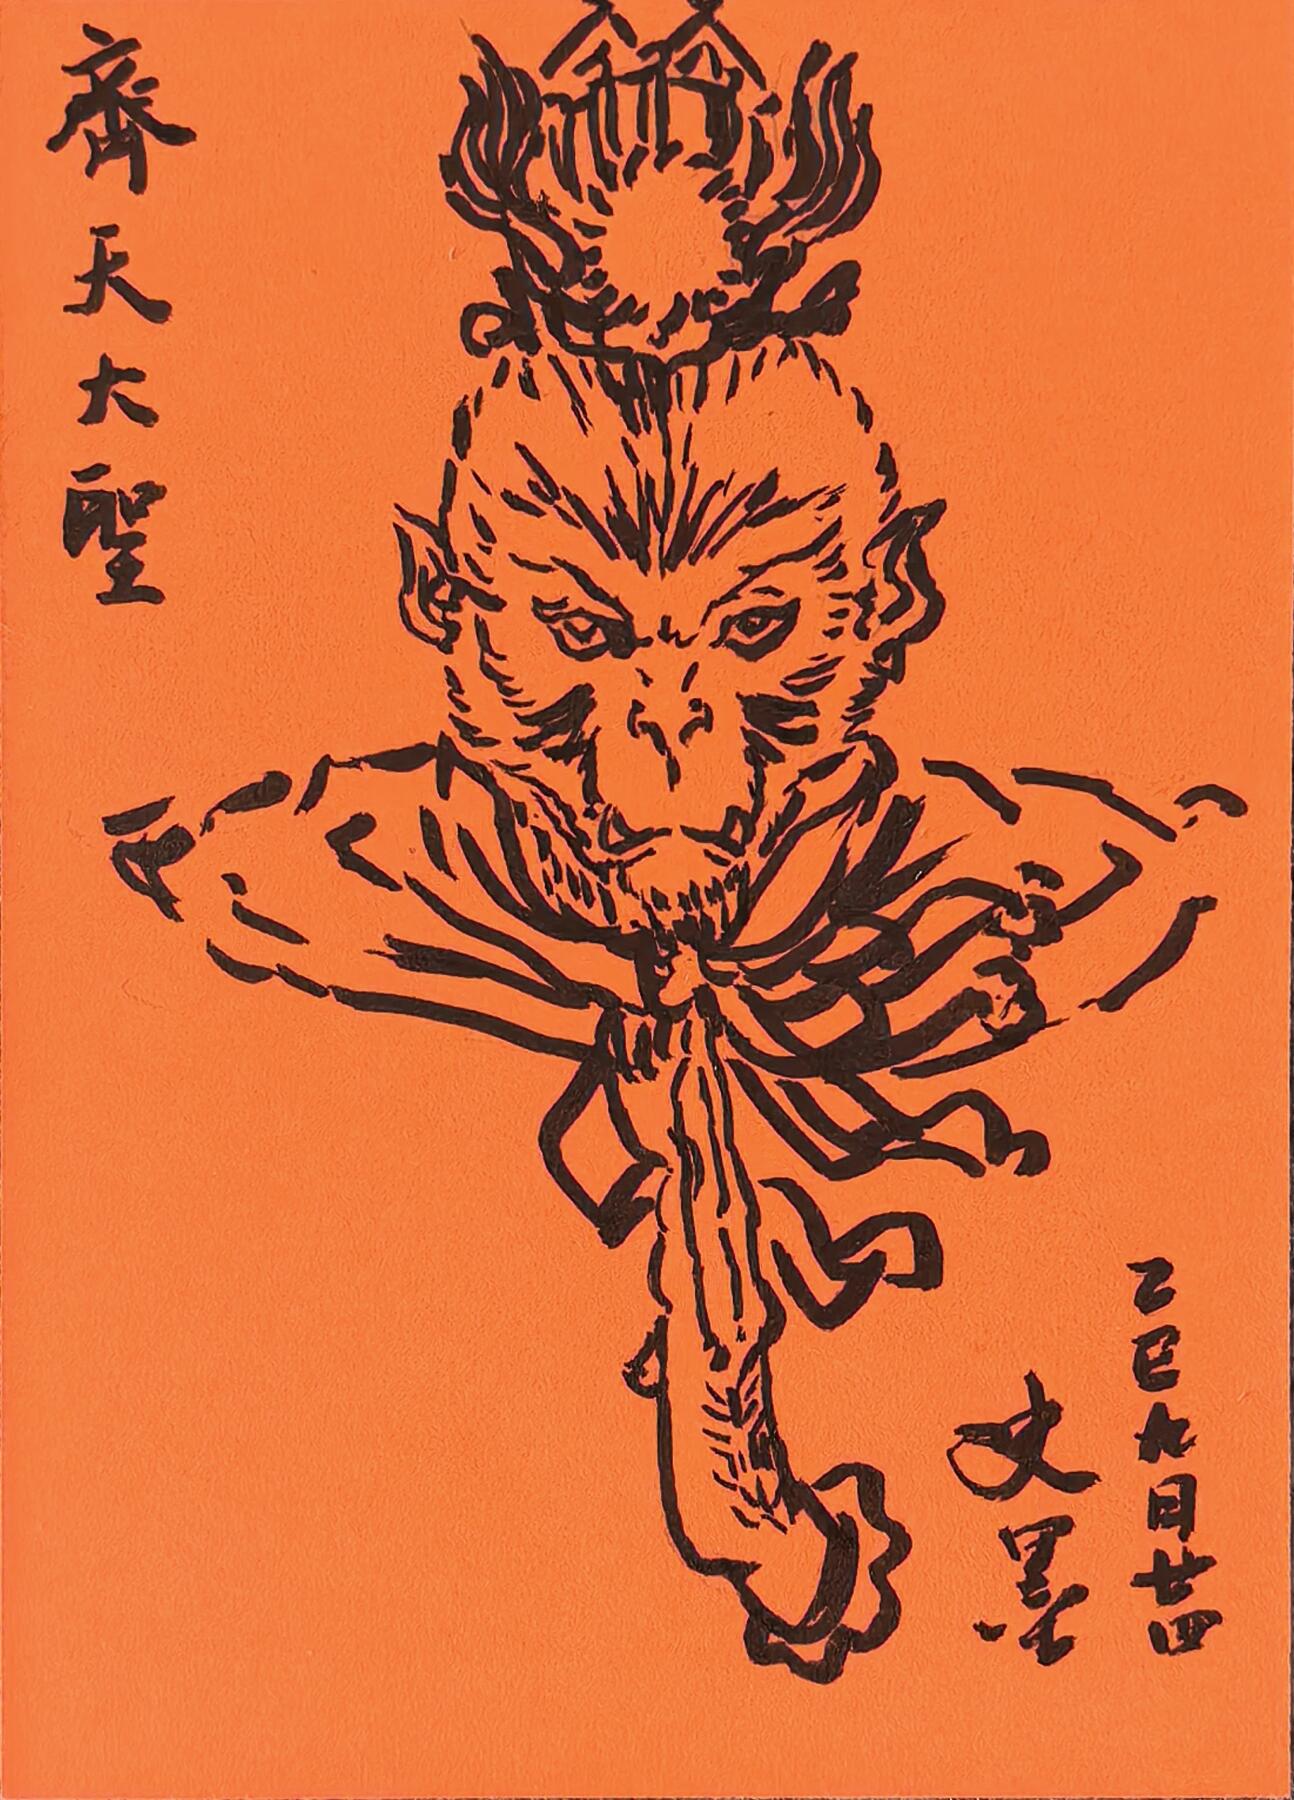 齊天大聖
乙巳九日廿四
文墨